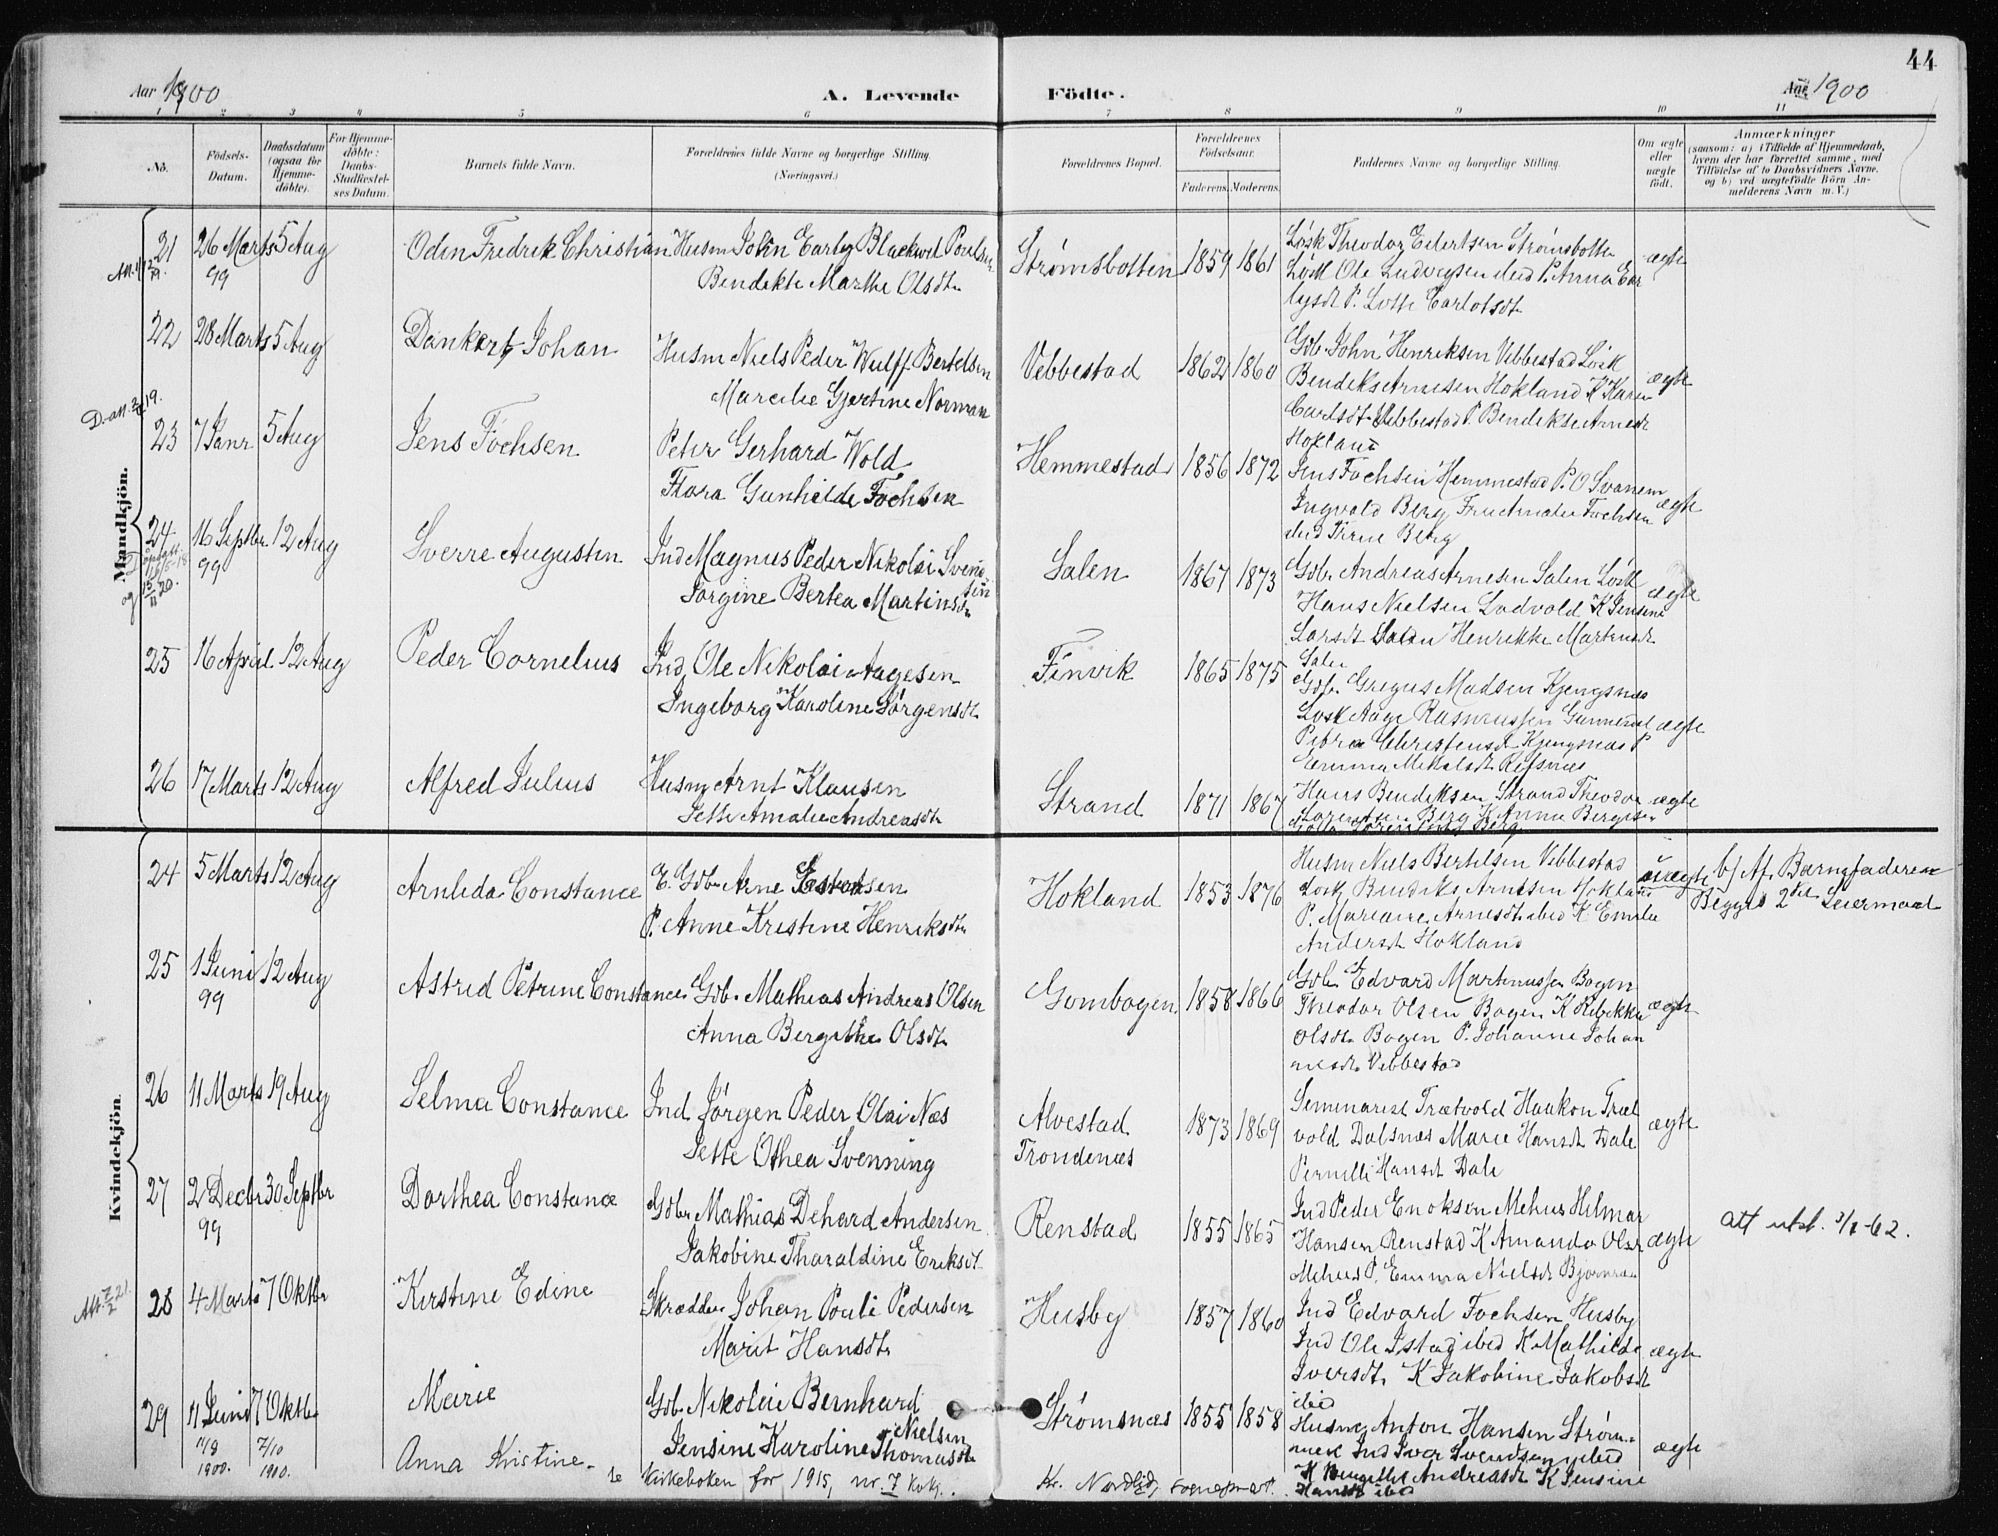 44
Aar 1900
A. Levende
Födte.
Aar 1900
1 2 3 4 5 6 7 8 9 10 11
No.
Födsels-Datum.
Daabsdatum (ogsaa for Hjemmedöbte).
For Hjemmedöbte: Daabs-Stadfæstelses Datum.
Barnets fulde Navn.
Forældrenes fulde Navne og borgerlige Stilling.
(Næringsvei.)
Forældrenes Bopæl.
Forældrenes Födselsaar.
Faderens. Moderens.
Faddernes Navne og borgerlige Stilling.
Om ægte eller uægte födt.
Anmærkninger
(saasom: a) i Tilfælde af Hjemmedaab, hvem der har forrettet samme, med Tilföielse af to Daabsvidners Navne, og b) ved uægtefödte Börn Anmelderens Navn m. V.)
Mandkjön.
21 26 Marts 99 5 Aug Odin Fredrik Christian Husm John Earby Blackwel Poulsen
Bendikte Marthe Olsdtr
Strømsbotten 1859 1861
Løsk Theodor Edertsen Strømsbotten
Løsk Ole Ludvigsen ibid P. Anna Car
lysdt P. Lotte Carlotsdt
ægte
22 28 Marts 5 Aug Dankert Johan
Husm Niels Peder Wulff Bertelsen
Marcilie Gjertine Norman
Vebbestad 1862 1860
Gdb. John Henriksen Vebbestad Løsk
Bendiks Arnesen Hokland K Karen
Carlsdt Vebbestad P. Bendikte Arnesdt
Hokland
ægte
23 7 Janr 5 Aug Jens Fochsen
Peter Gerhard Wold
Flora Gunhilde Fochsen
Hemmestad 1856 1872
Jens Fochsen Hemmestad P. O Svanem
Ingvald Berg Fru Amalie Fochsen
ibid Berg
ægte
24 16 Septbr 99 12 Aug Sverre Augustin
Ind Magnus Peder Nikolai Svendsen
Jørgine Bertea Martinsdtr
Salen 1867 1873
Gdb. Andreas Arnesen Salen Løsk
Hans Nielsen Lodvold K Jensine
Larsdt Salen Henrikke Martinsdt
Salen
ægte
25 16 April 12 Aug Peder Cornelius
Ind. Ole Nikolai Aagesen
Ingeborg Karoline Jörgensdt
Finvik 1865 1875
Gdb. Gregus Madsen Kjengsnæs
Løsk Aage Rasmussen
Petra Christensdt Kjengsnæs P
Emma Mikalsdt Refsnæs
ægte
26 17 Marts 12 Aug Alfred Julius
Husm Arnt Klausen
Jette Amalie Andreasdt
Strand 1871 1867
Hans Bendiksen Strand Theodor
Lorentsen Berg K Anna Bergesen
ægte
Kvindekjön.
24 5 Marts 12 Aug Arnlida Constance
E. Gdbr Arne Estensen
P. Anne Kristine Henriksdtr
Hokland 1853 1876
Husm Niels Bertelsen Vebbestad
Løsk Bendiks Arnesen Hokland
P. Mariane Arnesdt ibid K Emilie
Andersdt Hokland
uægte
b) Af Barnefaderen
Begges 2det Leiermaal
25 1 Juni 99 12 Aug Astrid Petrine Constance
Gdb. Mathias Andreas Olsen
Anna Bergithe Olsdt
Gombogen 1858 1866
Gdb. Edvard Martinussen Bogen
Theodor Olsen Bogen K Rebekka
Olsdt Bogen P. Johanne Johan
nesdt Vebbestad
ægte
26 11 Marts 19 Aug Selma Constance
Ind Jørgen Peder Olai Næs
Jette Othea Svenning
Alvestad
Trondenæs 1873 1869
Seminarist Trætvold Haakon Træt
vold Dalsnæs Marie Hansdt Dale
Pernille Hansdt Dale
ægte
27 2 Decbr 99 30 Septbr Dorthea Constance
Gdbr Mathias Dehard Andersen
Jakobine Tharaldine Eriksdt
Renstad 1855 1865
Ind Peder Enoksen Mehus Hilmar
Hansen Renstad K Amanda Olsdt
Mehus P. Emma Nielsdt Bjørnraa
ægte
Att utst. 3/1-62.
28 4 Marts 7 Oktbr Kirstine Edine
Skrædder Johan Pouli Pedersen
Marit Hansdtr
Husby 1857 1860
Ind Edvard Fochsen Husby
Ind Ole Istad ibid K Mathilde
Iversdt K Jakobine Jakobsdt
ibid
ægte
29 11 Juni 7 Oktbr Marie
11/9 1900. 7/10 1900.
Gdb. Nikolai Bernhard Nielsen
Jensine Karoline Thomasdt
Strømsnæs 1855 1858
Husm Anton Hansen Strøm
næs Ind Iver Svendsen ibid
K Bergithe Andreasdt K Jensine
Hansdt ibid
ægte
Anna Kristine. se Kirkeboken for 1915, nr. 7 kvk.
Nordlid, sogneprest.